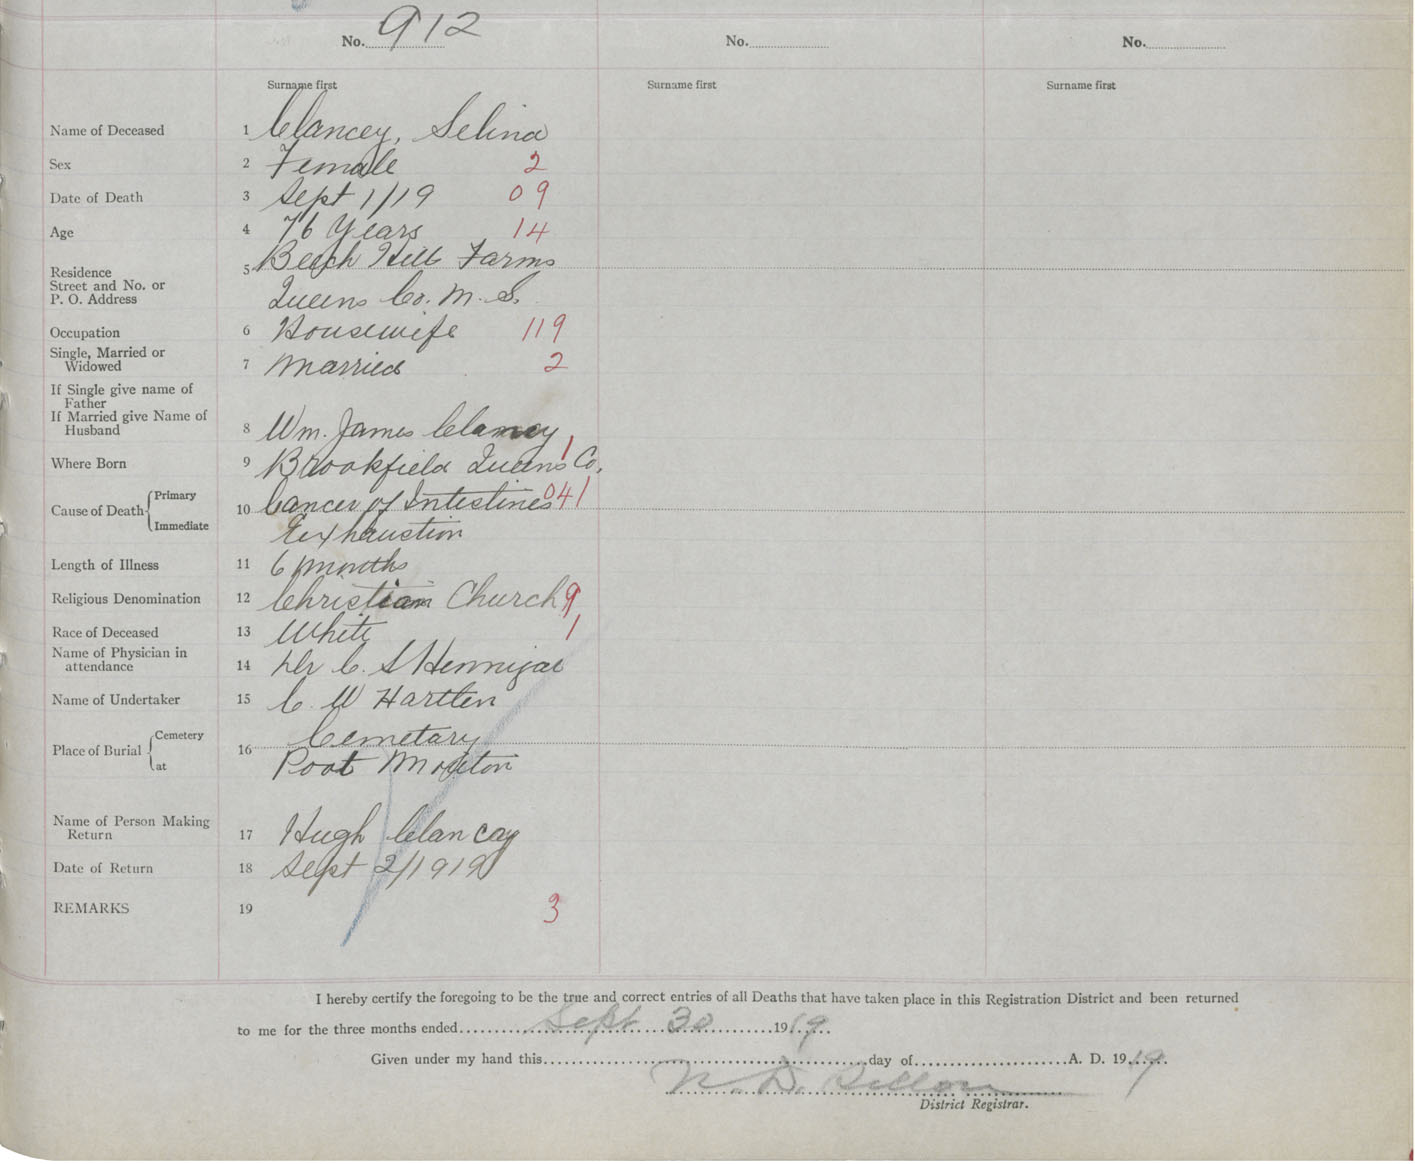 No. 912 No. No.
Surname first Surname first Surname first
Name of Deceased 1 Clancey, Selina
Sex 2 Female 2
Date of Death 3 Sept 1/19 09
Age 4 76 Years 14
Residence 5 Beech Hill Farms
Street and No. or
P. O. Address Queens Co. N. S.
Occupation 6 Housewife 119
Single, Married or
Widowed 7 Married 2
If Single give name of
Father
If Married give Name of
Husband 8 Wm. James Clancey
Where Born 9 Brookfield Queens Co. 1
Cause of Death Primary 10 Cancer of Intestines 041
Immediate Exhaustion
Length of Illness 11 6 months
Religious Denomination 12 Christian Church 9
Race of Deceased 13 White 1
Name of Physician in
attendance 14 Dr C. S Hennigar
Name of Undertaker 15 C. W Hartlen
Place of Burial Cemetery 16 Cemetary
at Poat Mouton
Name of Person Making
Return 17 Hugh Clancey
Date of Return 18 Sept 2/1919
REMARKS 19 3
I hereby certify the foregoing to be the true and correct entries of all Deaths that have taken place in this Registration District and been returned
to me for the three months ended Sept 30 1919
Given under my hand this day of A. D. 1919
N. D.
District Registrar.